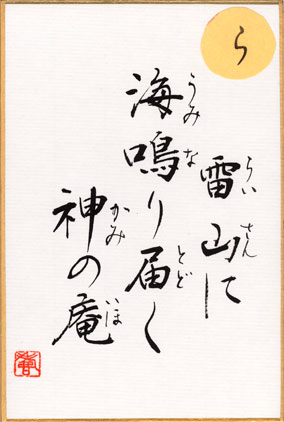 ら
雷山に
らいさん
海鳴り届く
うみなとど
神の庵
かみいほ